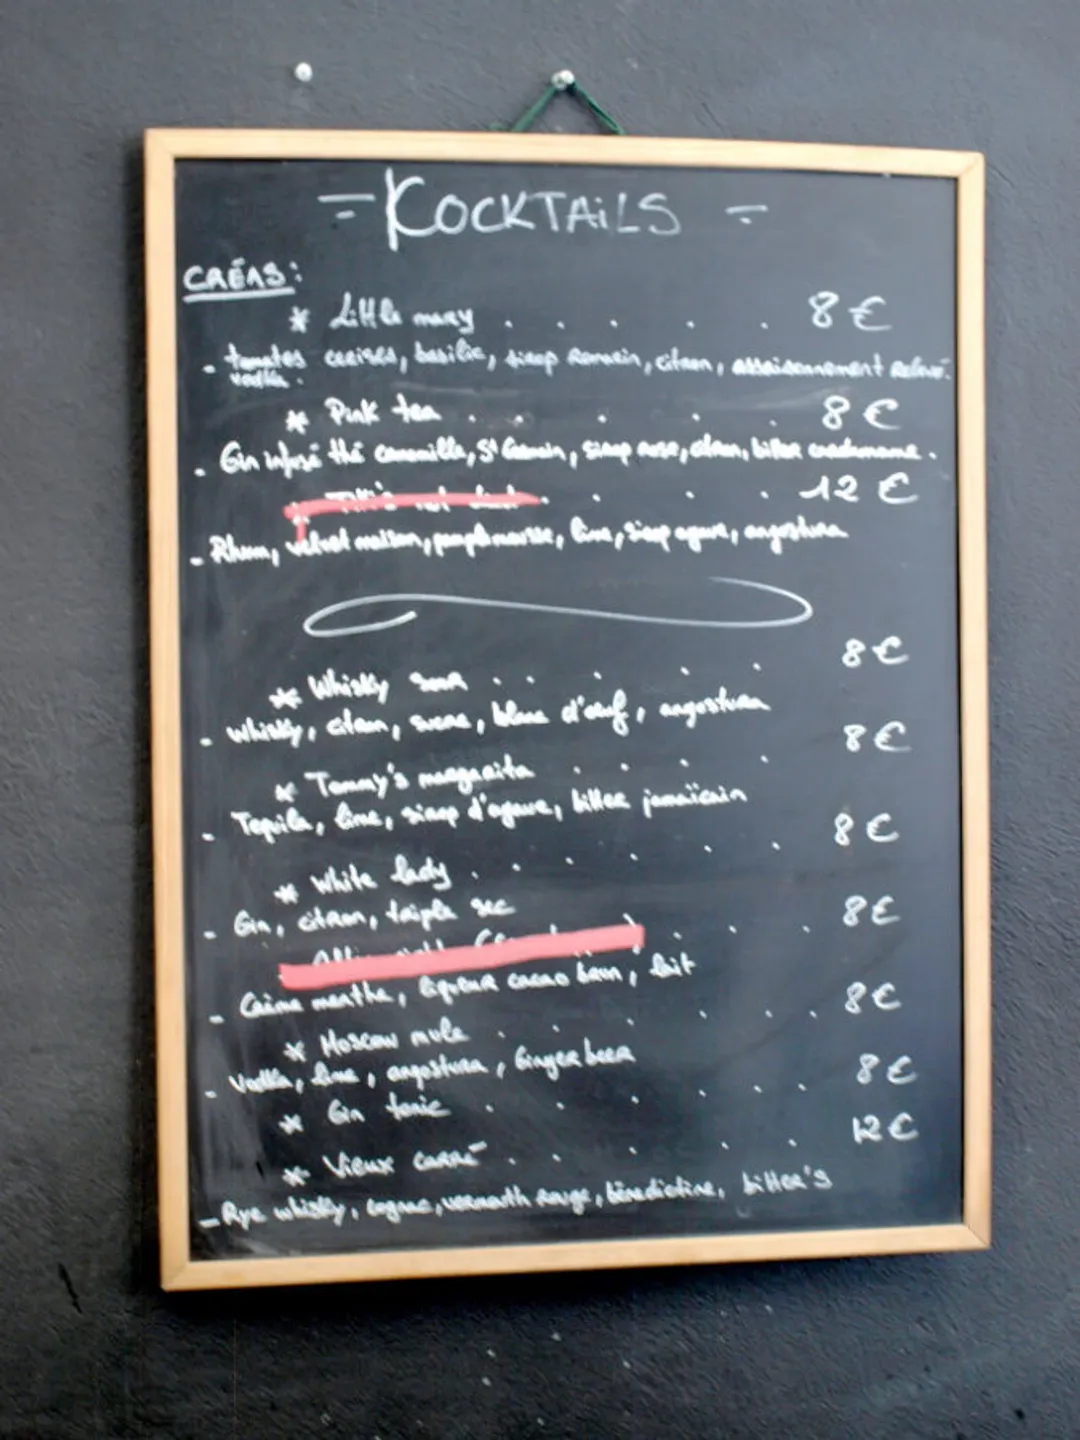 - KOCKTAiLS -
CRÉAS:
* Little mary . . . . . 8 €
- tomates cerises, basilic, sirop romarin, citron, assaisonnement relevé.
vodka.
* Pink tea . . . . . 8 €
- Gin infusé thé camomille, St Germain, sirop rose, citron, bitter cardamome.
. . . . 12 €
- Rhum, velvet maison, pamplemousse, lime, sirop agave, angostura
* Whisky sour . . . . . 8 €
- Whisky, citron, sucre, blanc d'œuf, angostura
* Tommy's margarita . . . . 8 €
- Tequila, lime, sirop d'agave, bitter jamaïcain
* White lady . . . . . . 8 €
- Gin, citron, triple sec
. . . 8 €
- Crème menthe, liqueur cacao brun, lait
* Moscow mule . . . . . . 8 €
- Vodka, lime, angostura, Ginger beer
* Gin tonic . . . . . . 8 €
* Vieux carré . . . . . 12 €
- Rye whisky, cognac, vermouth rouge, bénédictine, bitter's